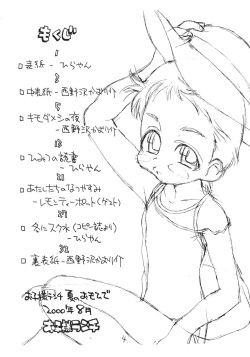 もくじ
1
□表紙-ひらやん
3
□中表紙-西野沢かおり介
5
□キモダメシの夜
-西野沢かおり介
□ひみつの読書
-ひらやん
□あたしたちのなつやすみ
-レモンティーポット(ゲスト)
29
□冬にスク水(コピー誌より)
-ひらやん
□裏表紙-西野沢かおり介
夏のおもいで
2000年8月